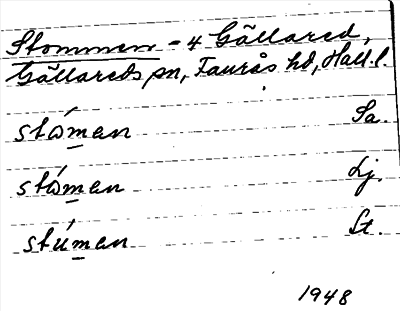 Stommen - 4 Gällared,
Gällareds sn, Faurås hd, Hall. l.
stó̀men Sa.
stó̀men Lj.
stúmen St.
1948